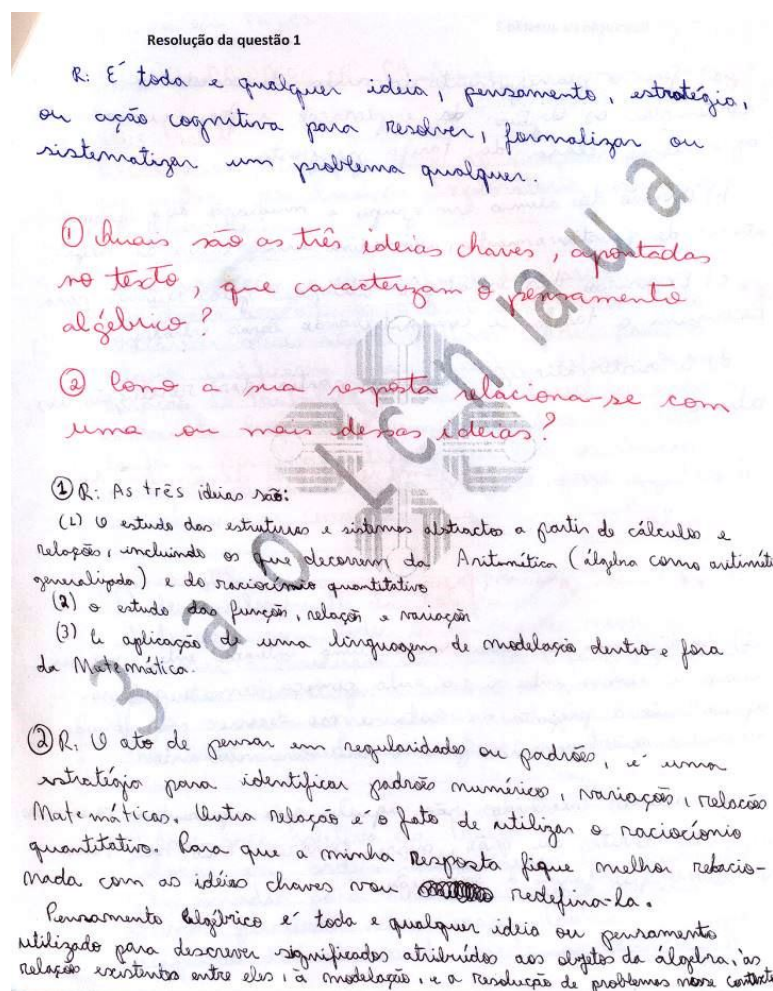 Resolução da questão 1
R: É toda e qualquer ideia, pensamento, estratégia,
ou ação cognitiva para resolver, formalizar ou
sistematizar um problema qualquer.
① Quais são as três ideias chaves, apontadas
no texto, que caracterizam o pensamento
algébrico?
② Como a sua resposta relaciona-se com
uma ou mais dessas ideias?
① R: As três ideias são:
(1) O estudo das estruturas e sistemas abstractos a partir de cálculos e
relações, incluindo os que decorrem da Aritmética (álgebra como aritméti
generalizada) e do raciocínio quantitativo
(2) o estudo das funções, relações e variações
(3) A aplicação de uma linguagem de modelação dentro e fora
da Matemática.
② R. O ato de pensar em regularidades ou padrões, é uma
estratégia para identificar padrões numéricos, variações, relacões
Matemáticas. Outra relação e o fato de utilizar o raciocíonio
quantitativo. Para que a minha Resposta fique melhor relacio-
nada com as idéias chaves vou redefina-la.
Pensamento Algébrico é toda e qualquer ideia ou pensamento
utilizado para descrever significados atribuídos aos objetos da álgebra, às
relações existentes entre eles, à modelação, e a resolução de problemas nesse contexto
3 a o L c n i a u a